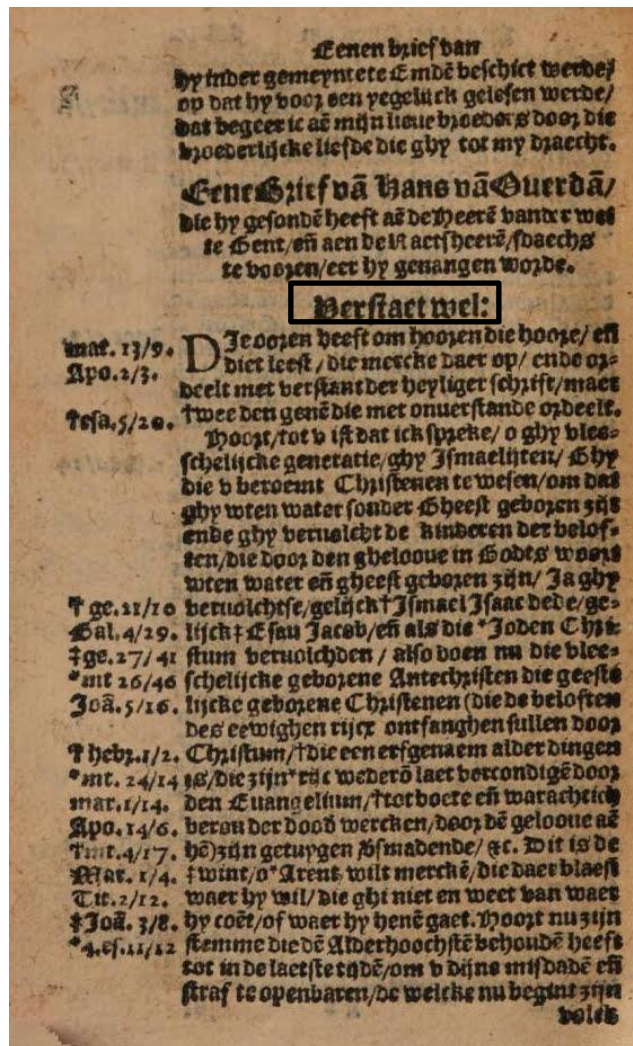 Eenen brief van
hy inder gemeyntete Emdē beschict werde/
op dat hy voor een yegelijck gelesen werde/
dat begeer ic aē mijn lieue broeders door die
broederlijcke liefde die ghy tot my draecht.
Eene Brief vā Hans vā Ouerdā/
die hy gesondē heeft aē de Heerē vander wet
te Gent/ eñ aen de Raetsheerē/ sdaechs
te vooren/ eer hy geuangen worde.
Verstaet wel:
mat. 13/9. DIe ooren heeft om hooren die hoore/ eñ
Apo. 2/3. diet leest/ die mercke daer op/ ende or-
deelt met verstant der heyliger schrift/ maer
†esa. 5/20. †wee den genē die met onuerstande ordeelt.
Hoort/ tot v ist dat ick spreke/ o ghy vlee-
schelijcke generatie/ ghy Ismaelijten/ Ghy
die v beroemt Christenen te wesen/ om dat
ghy wten water sonder Gheest geboren zijt
ende ghy veruolcht de kinderen der belof-
ten/ die door den ghelooue in Godts woort
wten water eñ gheest geboren zijn/ Ja ghy
† ge. 21/10 veruolchtse/ gelijck †Ismael Isaac dede/ ge-
Gal. 4/29. lijck ‡Esau Jacob/ eñ als die *Joden Chri-
‡ge. 27/41 stum veruolchden / also doen nu die vlee-
*mt 26/46 schelijcke geborene Antechristen die geeste
Joā. 5/16. lijcke geborene Christenen (die de beloften
des eewighen rijcx ontfanghen sullen door
† hebr. 1/2. Christum/ †die een erfgenaem alder dingen
*mt. 24/14 is/ die zijn *rijc wederō laet vercondigē door
mar. 1/14. den Euangelium/ †tot boete eñ warachtich
Apo. 14/6. berou der dood wercken/ door dē gelooue aē
†mt. 4/17. hē) zijn getuygen versmadende/ ꝛc. Dit is de
Mar. 1/4. ‡wint/ o *Arent wilt merckē/ die daer blaest
Tit. 2/12. waer hy wil/ die ghi niet en weet van waer
‡Joā. 3/8. hy coēt/ of waer hy henē gaet. Hoort nu zijn
*4. es. 11/12 stemme die dē Alderhoochstē behoudē heeft
tot in de laetste tijdē/ om v dijne misdadē eñ
straf te openbaren/ de welcke nu begint zijn
volck